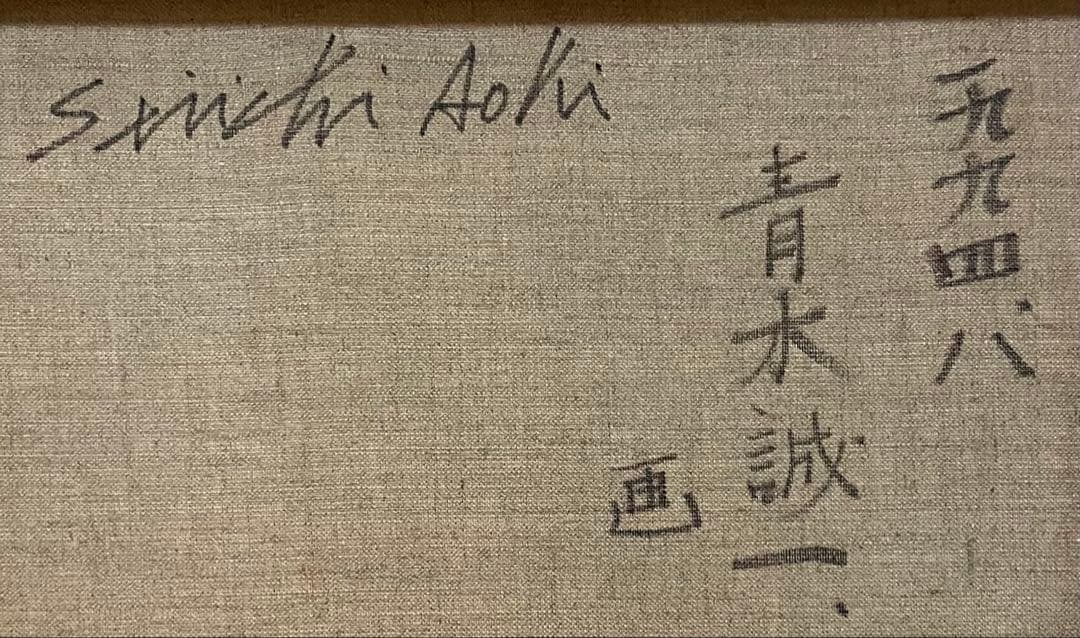 Seiichi Aoki
一九九四.八
青木誠一.
画